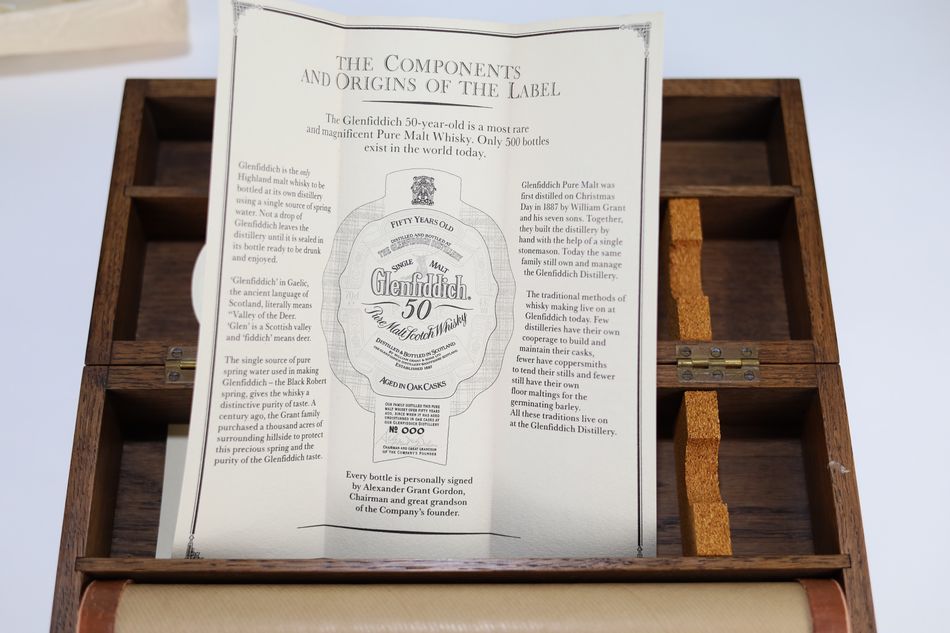 THE COMPONENTS
AND ORIGINS OF THE LABEL
The Glenfiddich 50-year-old is a most rare
and magnificent Pure Malt Whisky. Only 500 bottles
exist in the world today.
Glenfiddich is the only
Highland malt whisky to be
bottled at its own distillery
using a single source of spring
water. Not a drop of
Glenfiddich leaves the
distillery until it is sealed in
its bottle ready to be drunk
and enjoyed.
'Glenfiddich' in Gaelic,
the ancient language of
Scotland, literally means
"Valley of the Deer.
'Glen' is a Scottish valley
and 'fiddich' means deer.
The single source of pure
spring water used in making
Glenfiddich – the Black Robert
spring, gives the whisky a
distinctive purity of taste. A
century ago, the Grant family
purchased a thousand acres of
surrounding hillside to protect
this precious spring and the
purity of the Glenfiddich taste.
FIFTY YEARS OLD
DISTILLED AND BOTTLED AT
THE GLENFIDDICH DISTILLERY
SINGLE MALT
Glenfiddich
50
Pure Malt Scotch Whisky
DISTILLED & BOTTLED IN SCOTLAND
ESTABLISHED 1887
AGED IN OAK CASKS
OUR FAMILY DISTILLED THIS PURE
MALT WHISKY OVER FIFTY YEARS
AGO, SINCE WHEN IT HAS AGED
UNDISTURBED IN OAK CASKS AT
OUR GLENFIDDICH DISTILLERY
No 000
CHAIRMAN AND GREAT GRANDSON
OF THE COMPANY'S FOUNDER
Every bottle is personally signed
by Alexander Grant Gordon,
Chairman and great grandson
of the Company's founder.
Glenfiddich Pure Malt was
first distilled on Christmas
Day in 1887 by William Grant
and his seven sons. Together,
they built the distillery by
hand with the help of a single
stonemason. Today the same
family still own and manage
the Glenfiddich Distillery.
The traditional methods of
whisky making live on at
Glenfiddich today. Few
distilleries have their own
cooperage to build and
maintain their casks,
fewer have coppersmiths
to tend their stills and fewer
still have their own
floor maltings for the
germinating barley.
All these traditions live on
at the Glenfiddich Distillery.